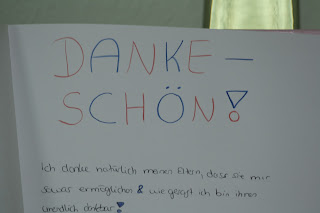 DANKE-
SCHÖN!
Ich danke natürlich meinen Eltern, dass sie mir
sowas ermöglichen & wie gesagt ich bin ihnen
unendlich dafbar!